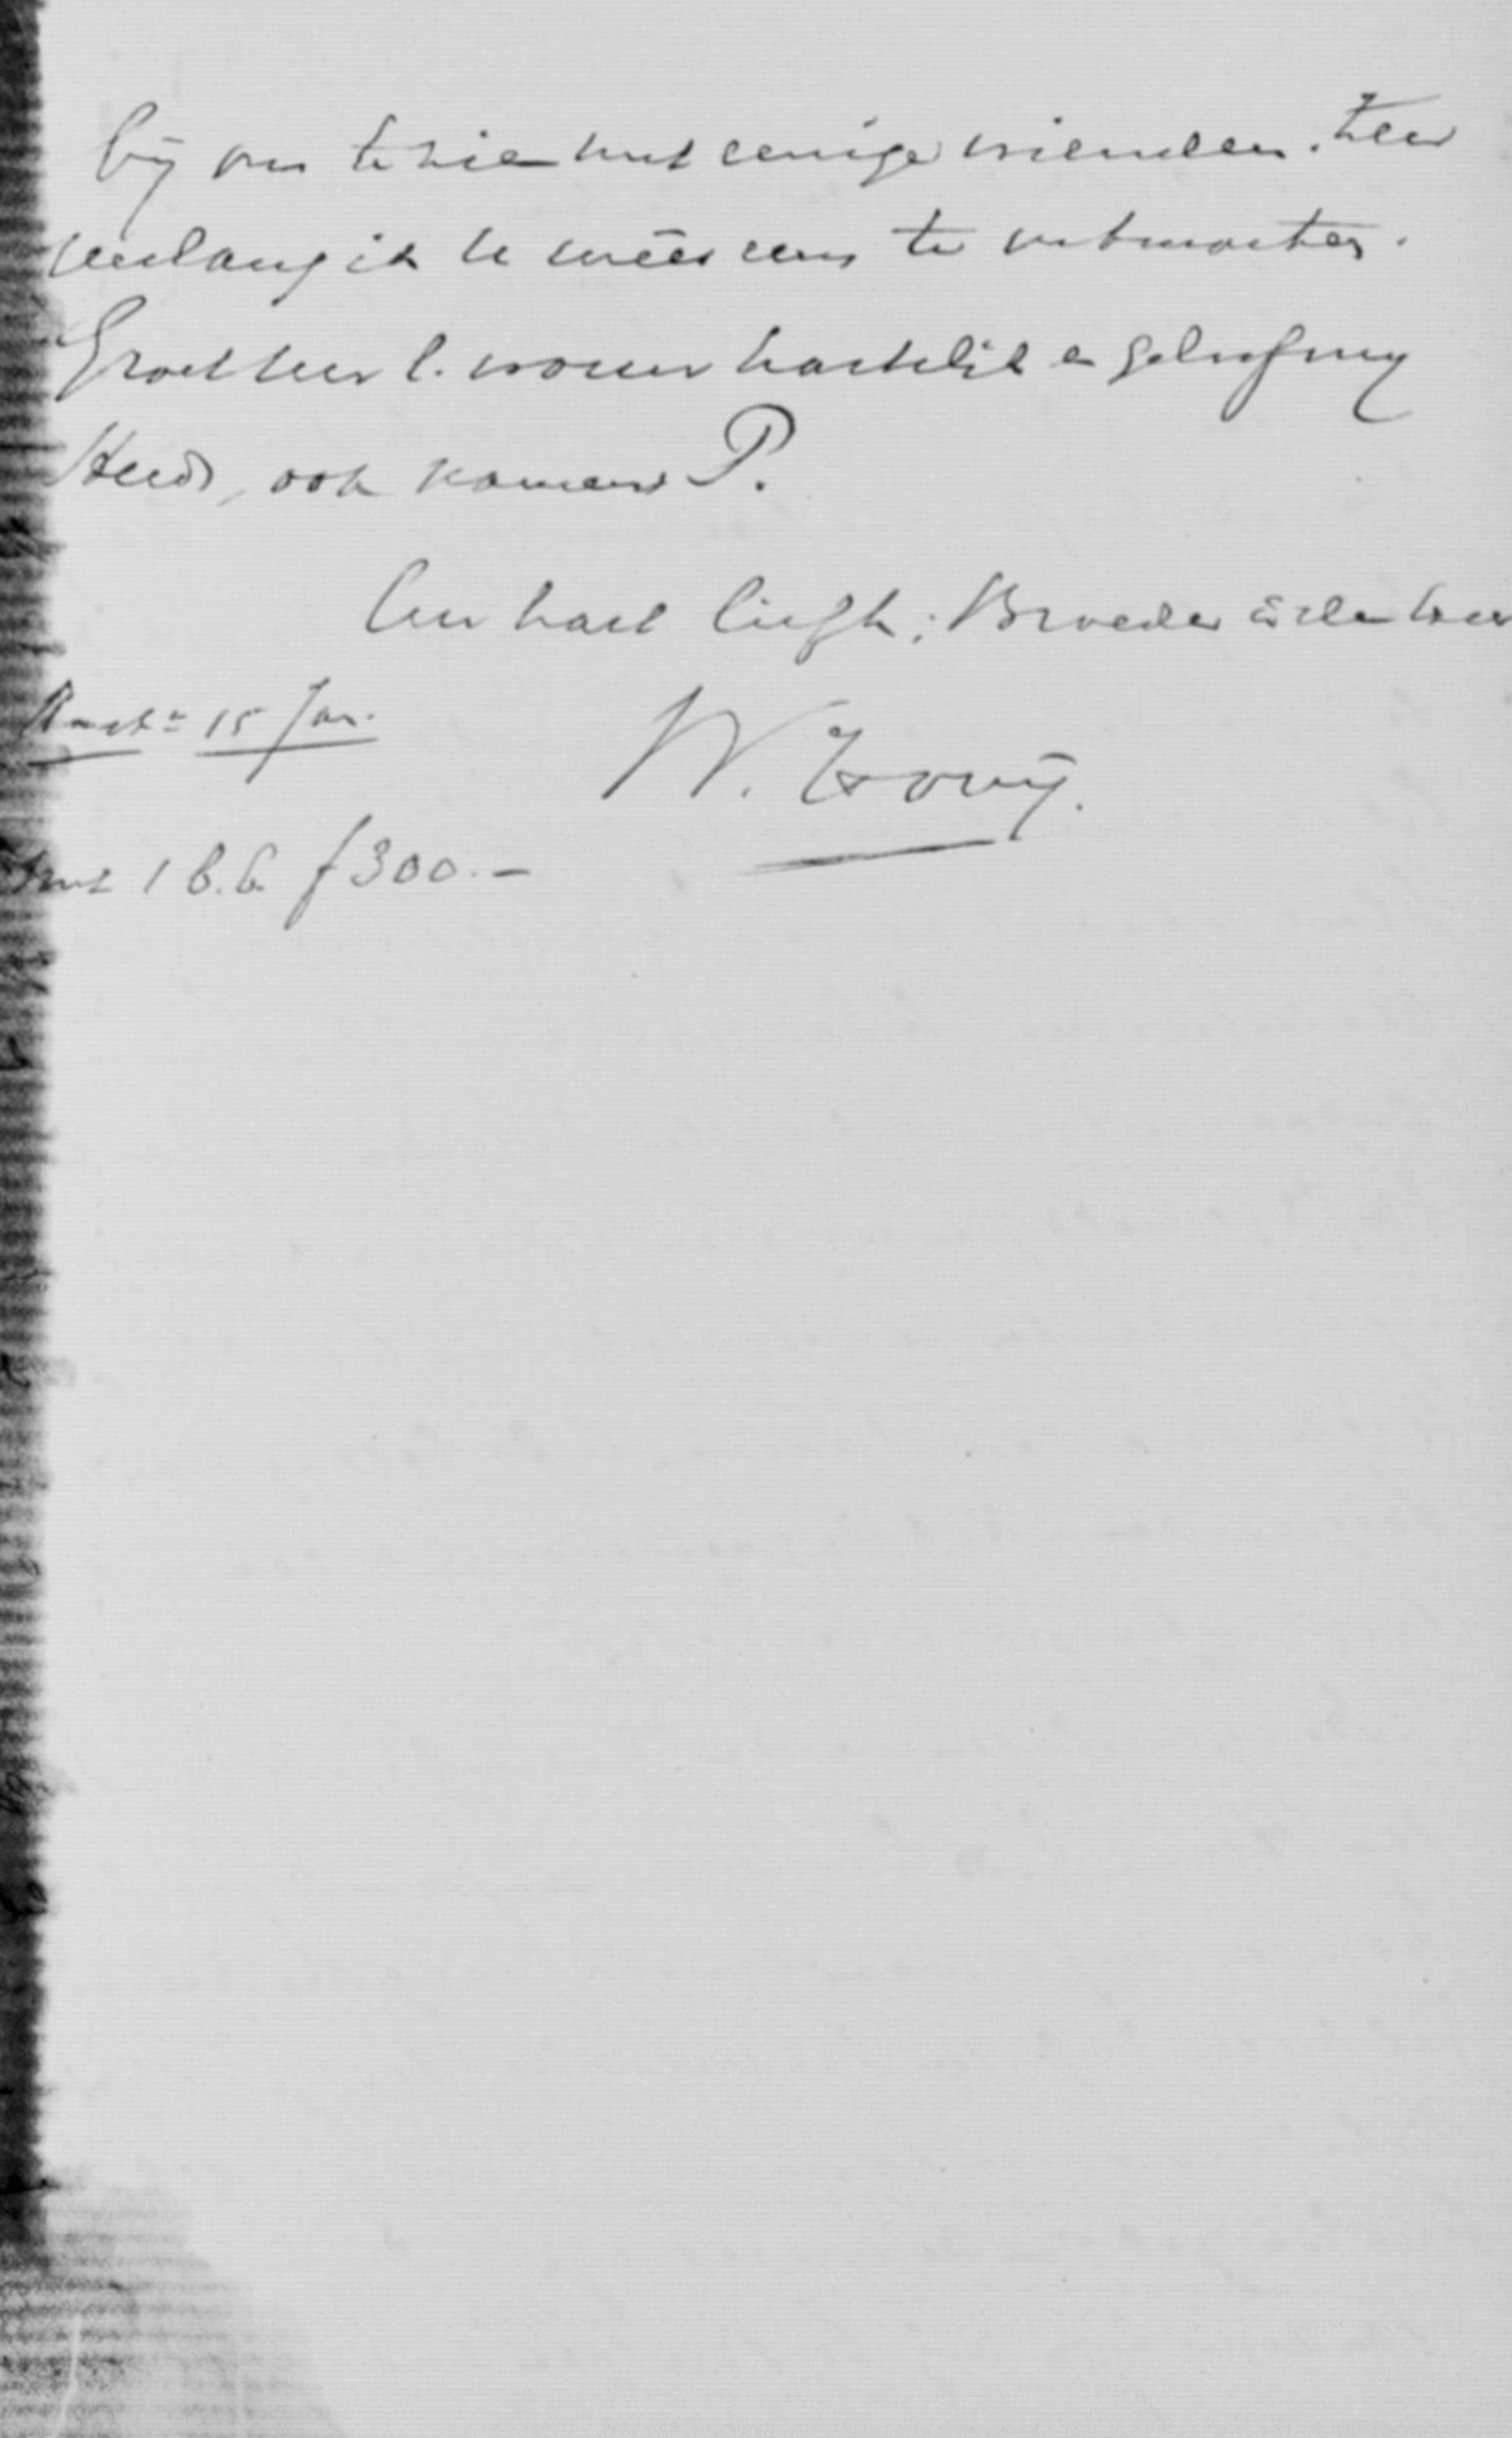 bij ons te zien met eenige vrienden. Zeer
verlang ik U weer eens te ontmoeten.
Groet Uw l. vrouw hartelijk en geloof mij
steeds, ook namens P.
Uw hart. liefh. Broeder in den Heer
W. Hovy.
Amst. 15 Jan.
met 1 b.b. f 300.-